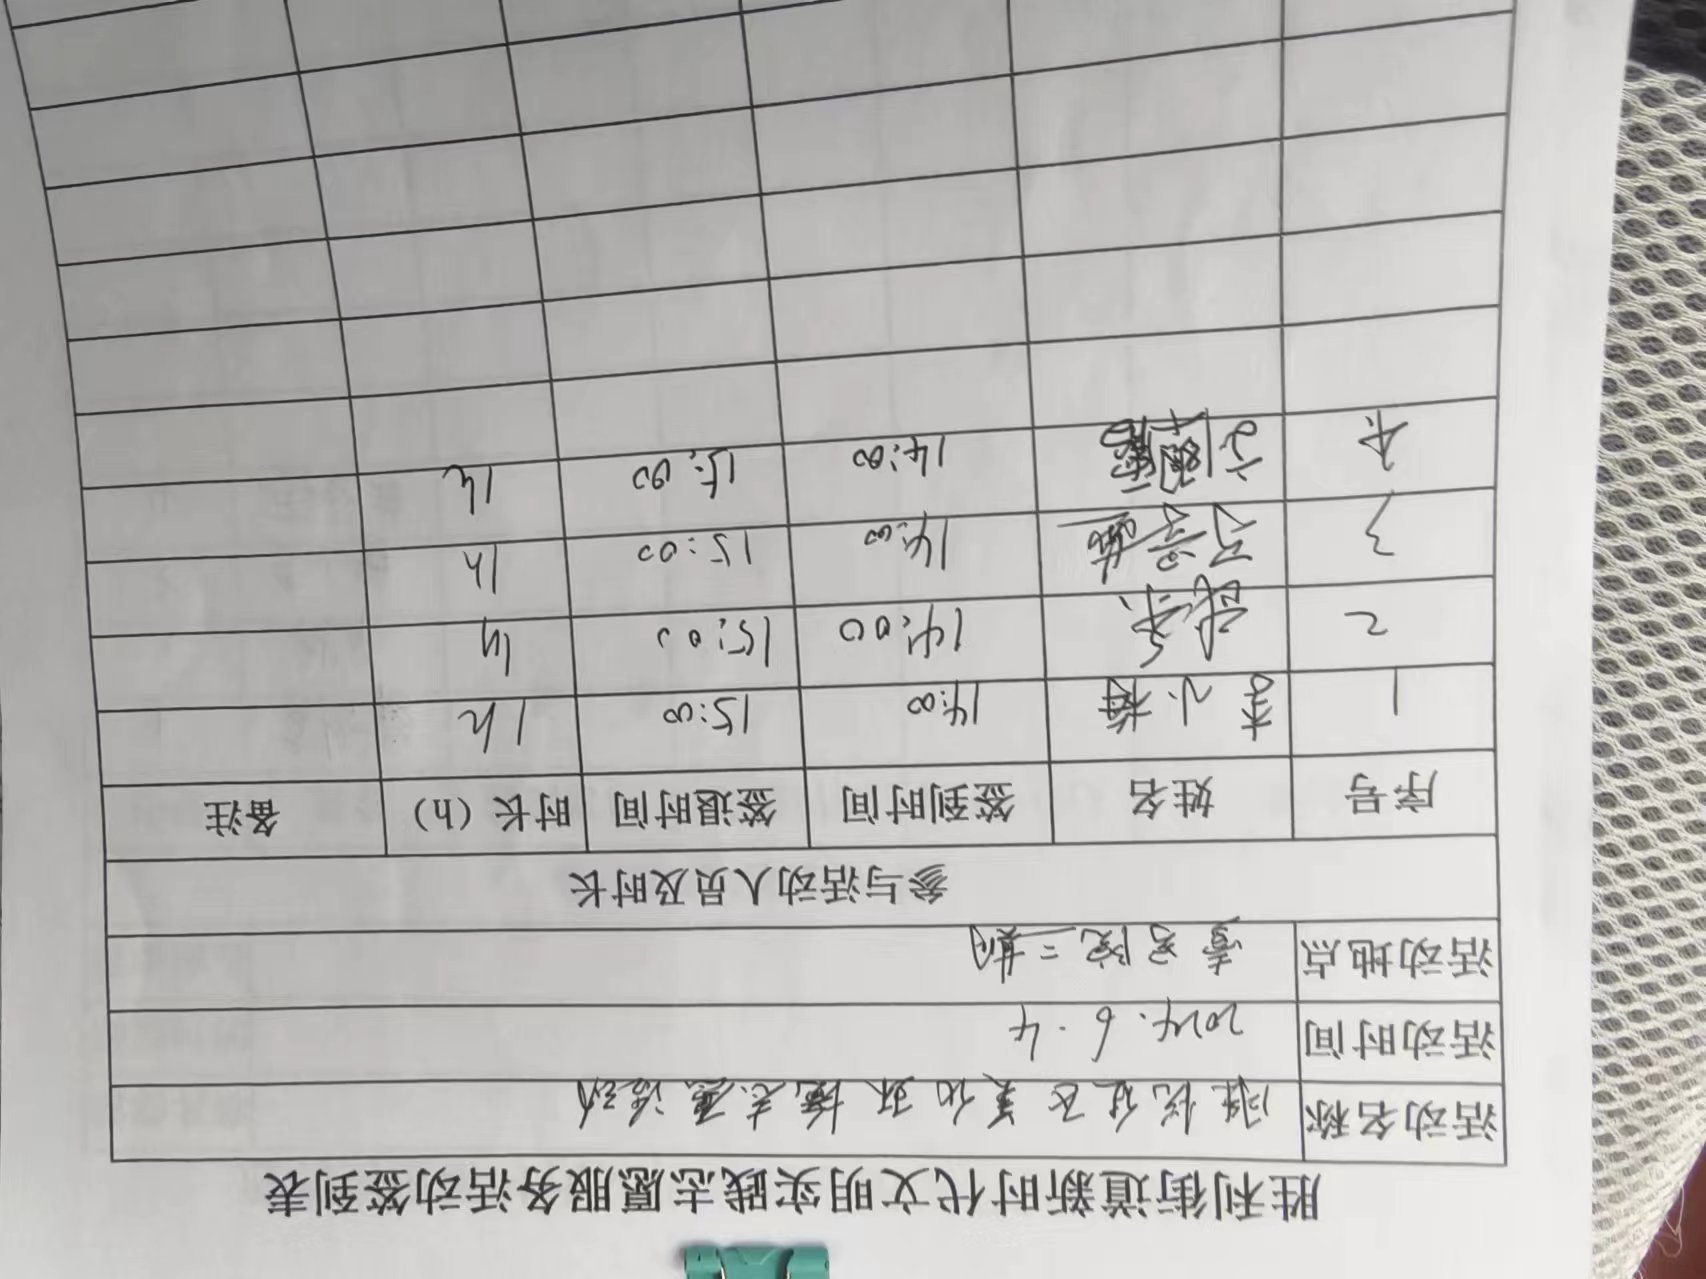 胜利街道新时代文明实践志愿服务活动签到表
活动名称 胜悦社区美化环境志愿活动
活动时间 2024.6.4
活动地点 二期
参与活动人员及时长
序号 姓名 签到时间 签退时间 时长(h) 备注
1 李小梅 14:00 15:00 1h
2 14:00 15:00 1h
3 14:00 15:00 1h
14:00 15:00 1h